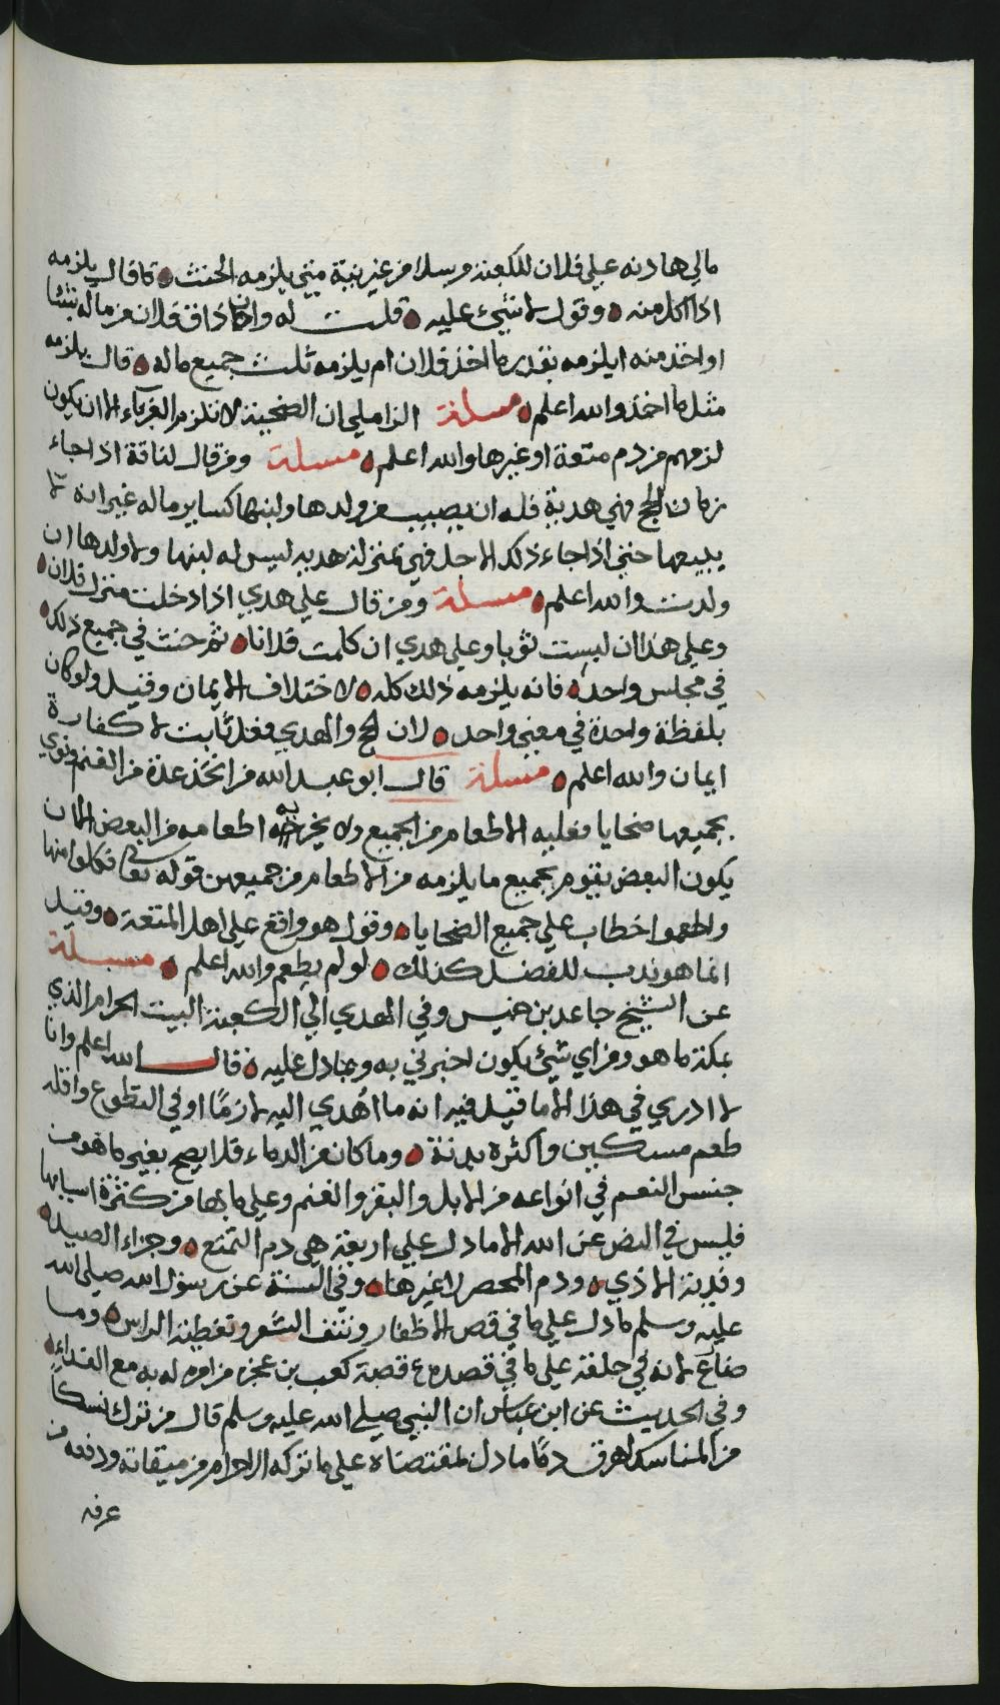 مالي هادنه علي فلان للكعبة مرسلا من غير نية متي يلزمه الحنث قال يلزمه
اذا اكل منه وقول لا شيء عليه قلت له وان ذاق فلان من ماله شيئا
او اخذ منه ايلزمه بقدر ما اخذ فلان ام يلزمه ثلث جميع ماله قال يلزمه
مثل ما اخذ والله اعلم مسلة الزاملي ان الضحية لا تلزم الغرباء الا ان يكون
لزمهم من دم متعة او غيرها والله اعلم مسلة ومن قال لناقة اذا جاء
زمان الحج فهي هدية فله ان يصيب من ولدها ولبنها كساير ماله غير انه لا
يبيعها حتي اذا جاء ذلك الاجل فهي بمنزلة هديه ليس له لبنها ولا ولدها ان
ولدت والله اعلم مسلة ومن قال علي هدي اذا دخلت منزل فلان
وعلي هذا ان لبست ثوبا وعلي هدي ان كلمت فلانا ثم حنث في جميع ذلك
في مجلس واحد فانه يلزمه ذلك كله لاختلاف الايمان وقيل ولو كان
بلفظة واحدة في معني واحد لان الحج والهدي فعل ثابت لا كفارة
ايمان والله اعلم مسلة قال ابو عبدالله من اتخذ عدة من الغنم ونوي
بجميعها ضحايا فعليه الاطعام من الجميع ولا يجزيه اطعامه من البعض الا ان
يكون البعض يقوم بجميع ما يلزمه من الاطعام من جميعهن قوله تعالى فكلوا منها
واطعموا خطاب علي جميع الضحايا وقول هو واقع علي اهل المتعة وقيل
انما هو ندب للفضل كذلك لو لم يطعم والله اعلم مسيلة
عن الشيخ جاعد بن خميس وفي الهدي الي الكعبة البيت الحرام الذي
بمكة ما هو ومن اي شيء يكون اخبرني به وبما دل عليه قال الله اعلم وانا
لا ادري في هذا الا ما قيل فيه انه ما اهدي اليه لازما او في التطوع واقله
طعم مسكين واكثره بدنة وما كان من الدماء فلا يصح بغير ما هو من
جنس النعم في انواعه من الابل والبقر والغنم وعلي ما بها من كثرة اسبابها
فليس في النص عن الله الا ما دل علي اربعة هي دم التمتع وجزاء الصيد
وفدية الاذي ودم المحصر لا غيرها وفي السنة عن رسول الله صلي الله
عليه وسلم ما دل علي ما في قص الاظفار ونتف الشعر وتغطية الراس وما
ضاع لانه في حلقه علي ما في قصة كعب بن عجرة من امره له به مع الفداء
وفي الحديث عن ابن عباس ان النبي صلي الله عليه وسلم قال من ترك نسكا
من المناسك اهرق دما ما دل بمقتضاه علي ما تركه الاحرام من ميقاته ودفعه من
عرفه